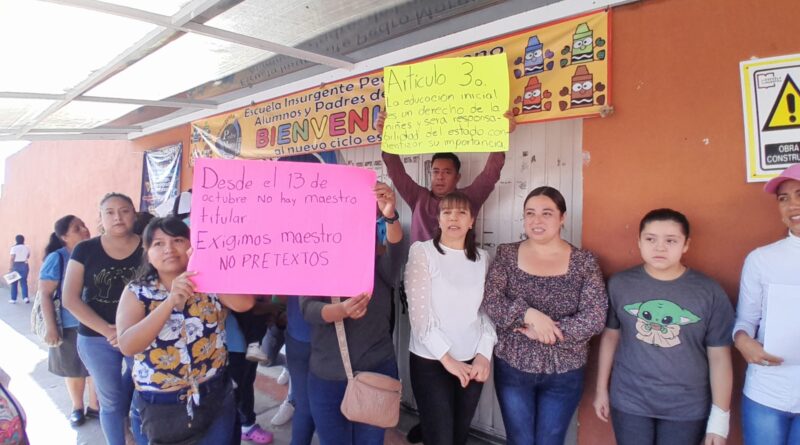 Escuela Insurgente Pe
Alumnos y Padres de
BIENVENI
al nuevo ciclo es
Artículo 3o.
La educación inicial
es un derecho de la
niñes y será responsa-
bilidad del estado con-
su importancia.
Desde el 13 de
octubre no hay maestro
titular
Exigimos maestro
NO PRETEXTOS
OBRA
CONSTRU